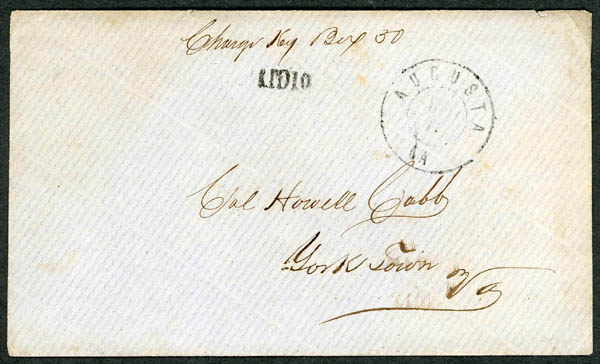 Charge Key Box 30
AUGUSTA
GA
Col Howell Cobb
York Town Va